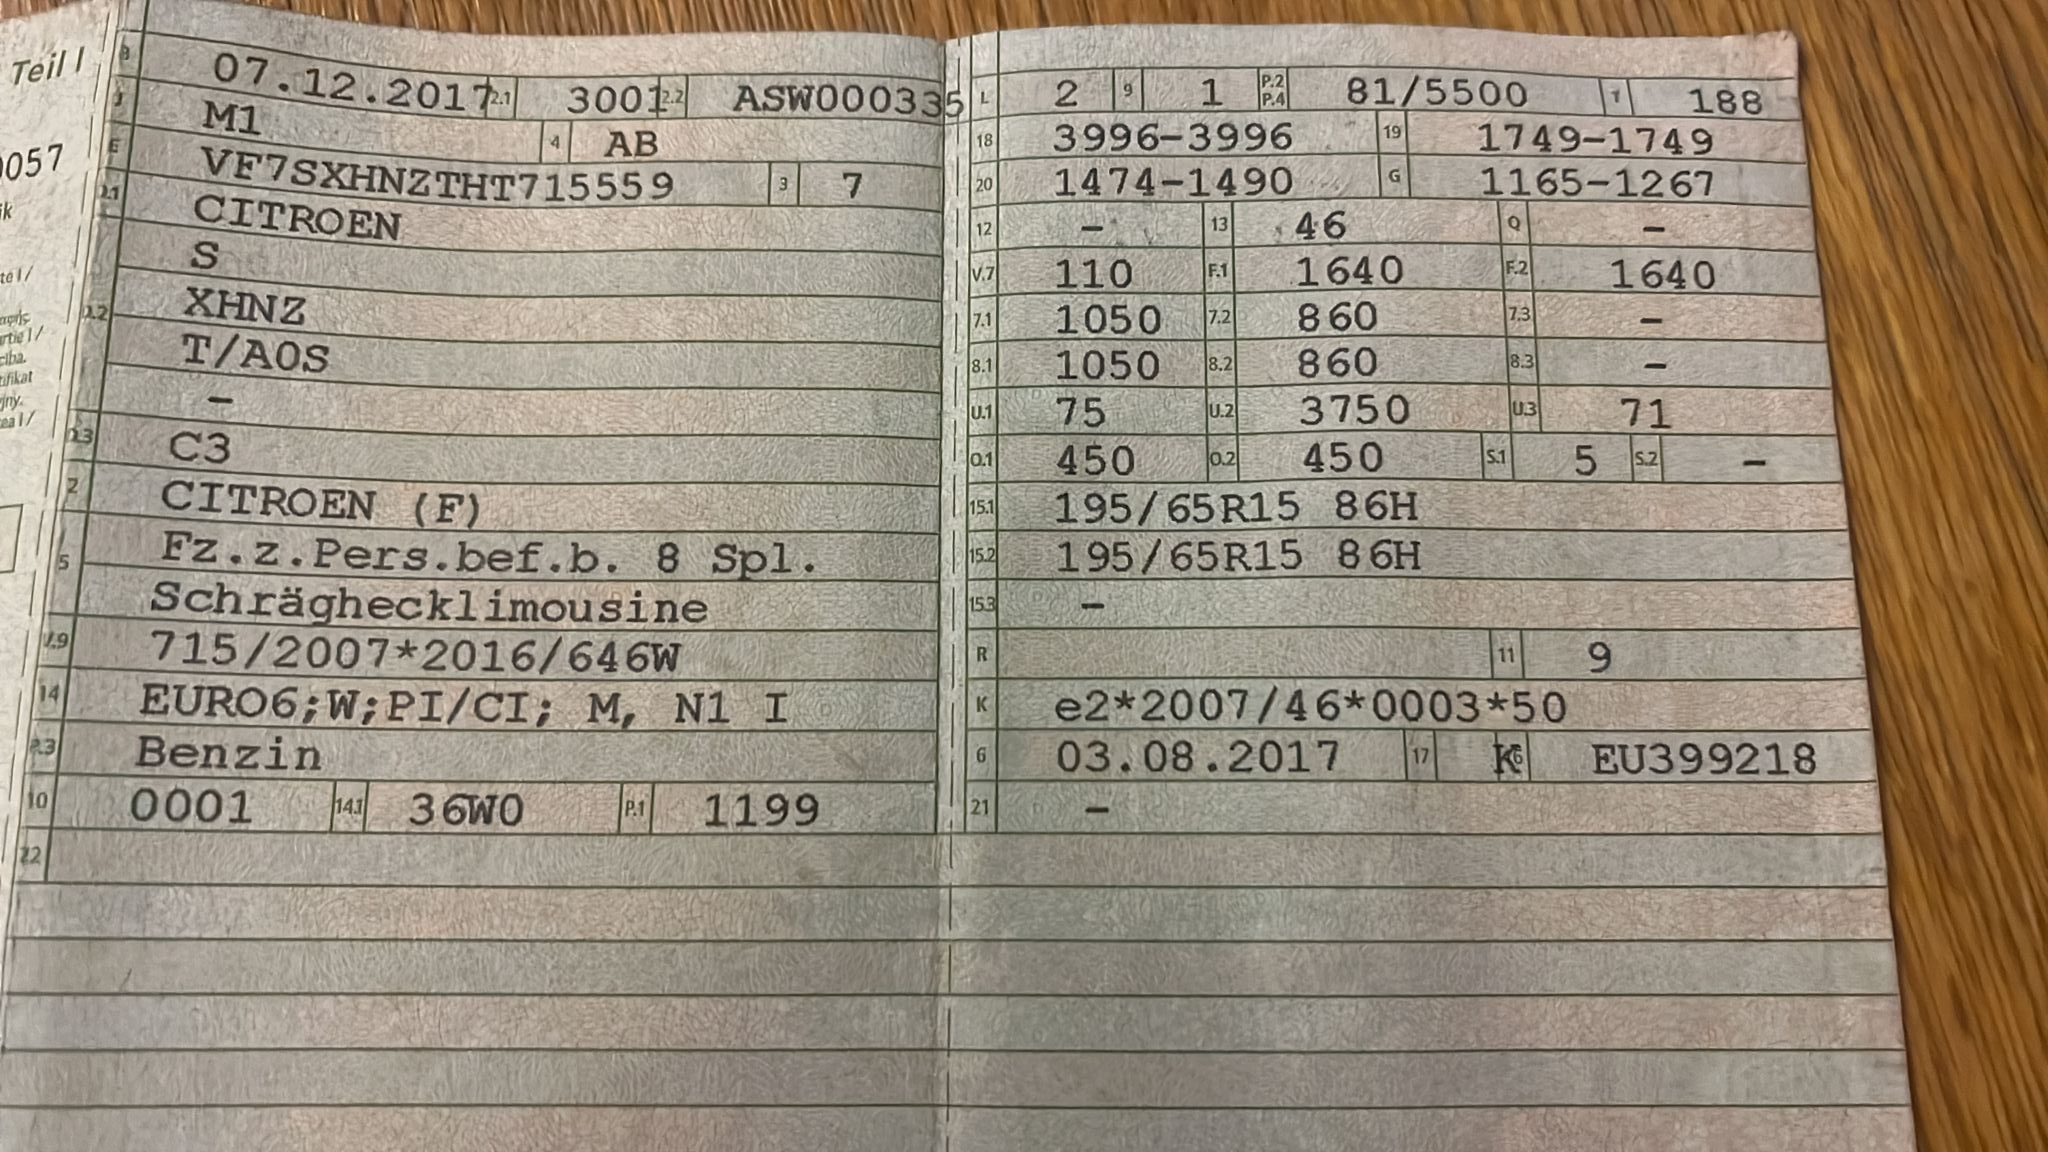 Teil I
057
B 07.12.2017 2.1 3001 2.2 ASW000335
J M1 4 AB
E VF7SXHNZTHT715559 3 7
D.1 CITROEN
S
D.2 XHNZ
T/A0S
–
D.3 C3
2 CITROEN (F)
5 Fz.z.Pers.bef.b. 8 Spl.
Schräghecklimousine
V.9 715/2007*2016/646W
14 EURO6;W;PI/CI; M, N1 I
P.3 Benzin
10 0001 14.1 36W0 P.1 1199
22
L 2 9 1 P.2 P.4 81/5500 T 188
18 3996-3996 19 1749-1749
20 1474-1490 G 1165-1267
12 – 13 46 Q –
V.7 110 F.1 1640 F.2 1640
7.1 1050 7.2 860 7.3 –
8.1 1050 8.2 860 8.3 –
U.1 75 U.2 3750 U.3 71
O.1 450 O.2 450 S.1 5 S.2 –
15.1 195/65R15 86H
15.2 195/65R15 86H
15.3 –
R 11 9
K e2*2007/46*0003*50
6 03.08.2017 17 K EU399218
21 –